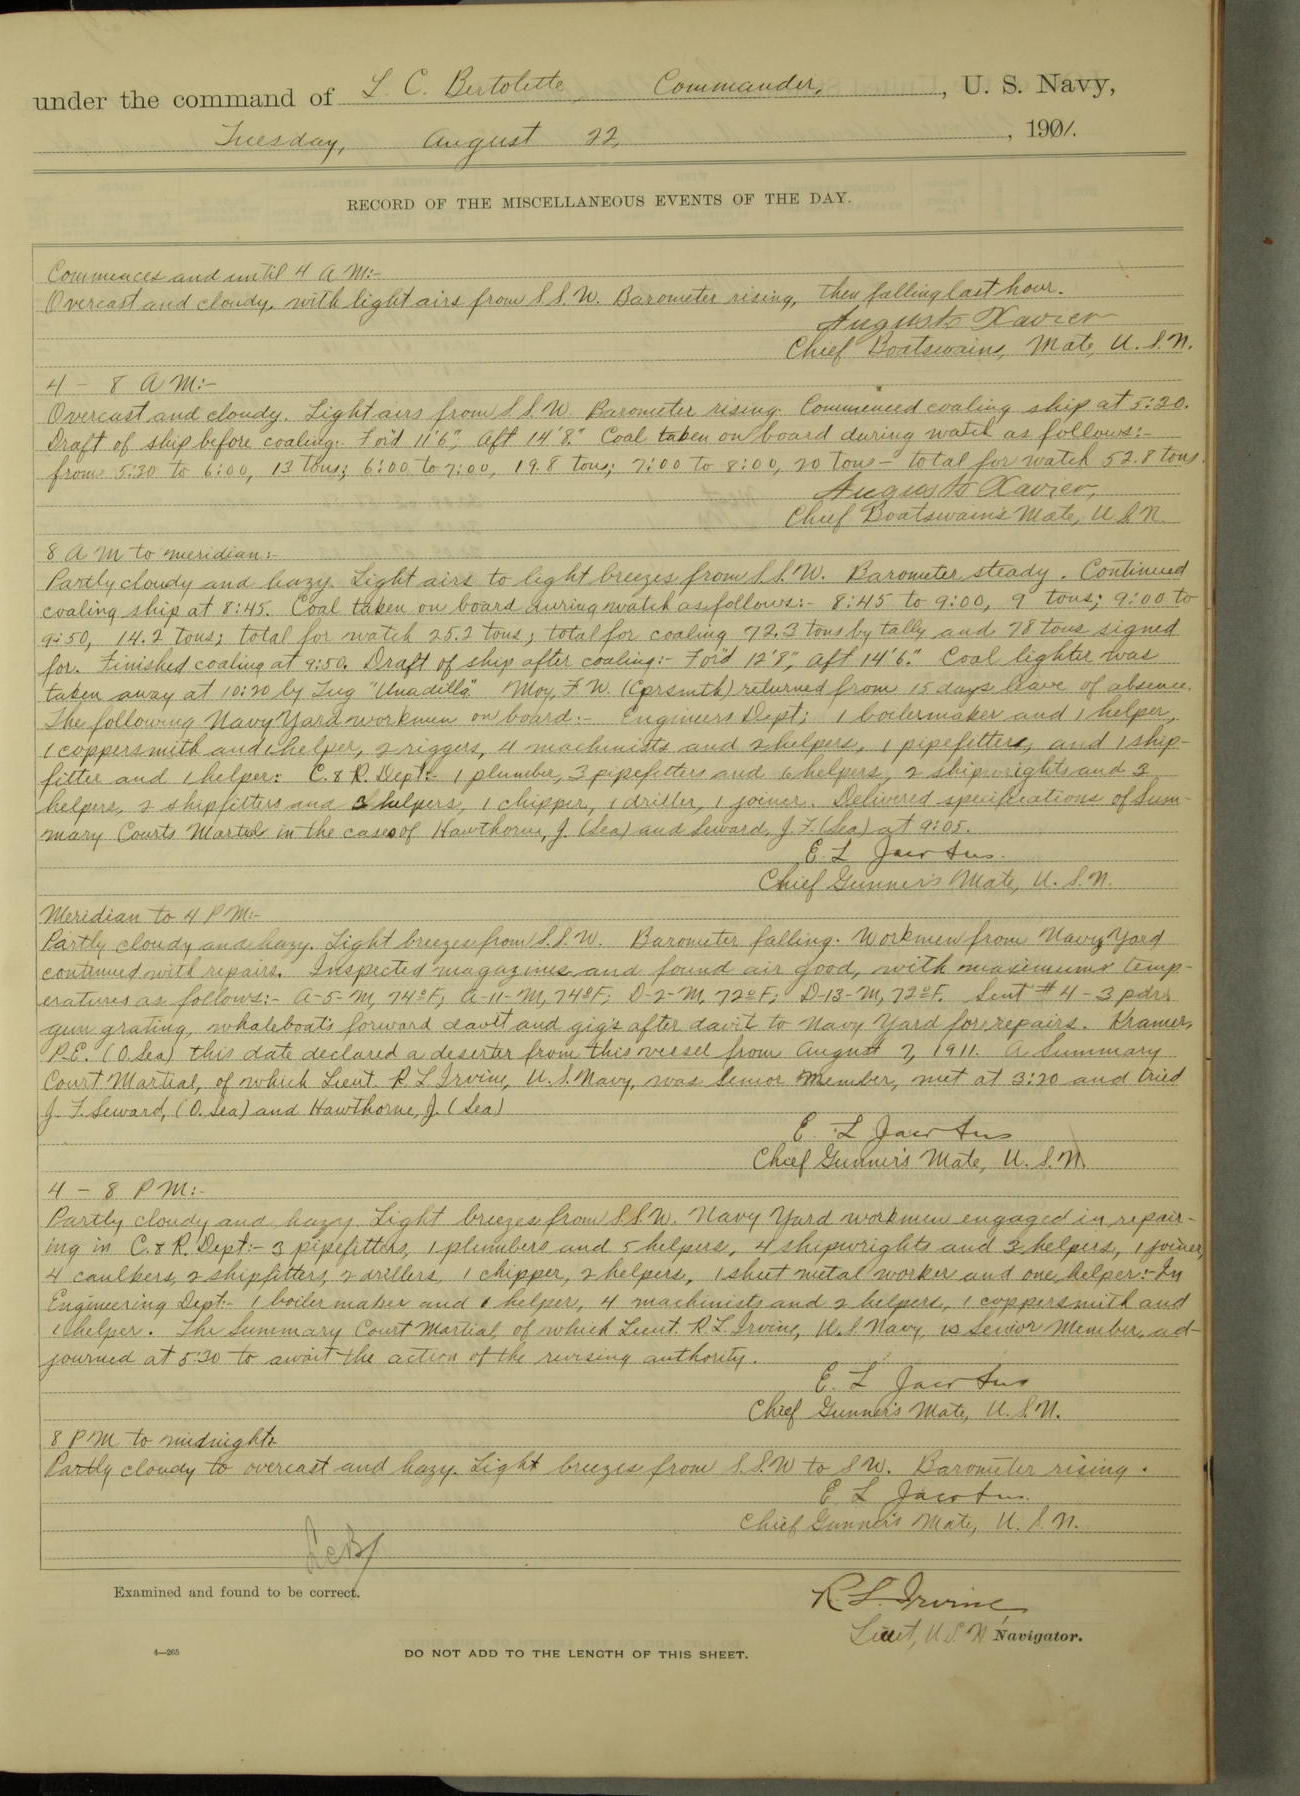 under the command of L. C. Bertolette, Commander, , U. S. Navy,
Tuesday, August 22, , 1901.
RECORD OF THE MISCELLANEOUS EVENTS OF THE DAY.
Commences and until 4 A M:-
Overcast and cloudy, with light airs from S.S.W. Barometer rising, then falling last hour.
Augusto Xavier
Chief Boatswains, Mate, U. S. N.
4 - 8 A M:-
Overcast and cloudy. Light airs from S.S.W. Barometer rising. Commenced coaling ship at 5:20.
Draft of ship before coaling:- For'd 11'6", Aft 14'8". Coal taken on board during watch as follows:-
from 5:30 to 6:00, 13 tons; 6:00 to 7:00, 19.8 tons; 7:00 to 8:00, 20 tons - total for watch 52.8 tons.
Augusto Xavier,
Chief Boatswain's Mate, U S N
8 A M to meridian:-
Partly cloudy and hazy. Light airs to light breezes from S.S.W. Barometer steady. Continued
coaling ship at 8:45. Coal taken on board during watch as follows:- 8:45 to 9:00, 9 tons; 9:00 to
9:50, 14.2 tons; total for watch 25.2 tons; total for coaling 72.3 tons by tally and 78 tons signed
for. Finished coaling at 9:50. Draft of ship after coaling:- For'd 12'8", Aft 14'6". Coal lighter was
taken away at 10:20 by Tug "Unadilla". Moy, F. W. (Cprsmth) returned from 15 days leave of absence.
The following Navy Yard workmen on board:- Engineers Dept; 1 boilermaker and 1 helper,
1 coppersmith and 1 helper, 2 riggers, 4 machinists and 2 helpers, 1 pipefitter, and 1 ship-
fitter and 1 helper: C. & R. Dept:- 1 plumber, 3 pipefitters and 6 helpers, 2 shipwrights and 3
helpers, 2 shipfitters and 3 helpers, 1 chipper, 1 driller, 1 joiner. Delivered specifications of Sum-
mary Courts Martial in the case of Hawthorne, J. (Sea) and Seward, J. F. (Sea) at 9:05.
E. L. Jacobus.
Chief Gunner's Mate, U. S. N.
Meridian to 4 P M:-
Partly cloudy and hazy. Light breezes from S.S.W. Barometer falling. Workmen from Navy Yard
continued with repairs. Inspected magazines and found air good, with maximum temp-
eratures as follows:- A-5-M, 74°F; A-11-M, 74°F; D-2-M, 72°F; D-13-M, 72°F. Sent #4 - 3 pdrs
gun grating, whaleboat's forward davit and gig's after davit to Navy Yard for repairs. Kramer,
P.E. (O.Sea) this date declared a deserter from this vessel from August 7, 1911. A Summary
Court Martial, of which Lieut. R. L. Irvine, U. S. Navy, was Senior Member, met at 3:20 and tried
J. F. Seward, (O. Sea) and Hawthorne, J. (Sea)
E. L. Jacobus
Chief Gunner's Mate, U. S. N.
4 - 8 P M:-
Partly cloudy and hazy. Light breezes from S.S.W. Navy Yard workmen engaged in repair-
ing in C. & R. Dept:- 3 pipefitters, 1 plumbers and 5 helpers, 4 shipwrights and 3 helpers, 1 joiner,
4 caulkers, 2 shipfitters, 2 drillers, 1 chipper, 2 helpers, 1 sheet metal worker and one helper:- In
Engineering Dept:- 1 boiler maker and 1 helper, 4 machinists and 2 helpers, 1 coppersmith and
1 helper. The Summary Court Martial, of which Lieut. R. L. Irvine, U. S. Navy, is Senior Member, ad-
journed at 5:30 to await the action of the revising authority.
E. L. Jacobus
Chief Gunner's Mate, U. S. N.
8 P M to midnight:-
Partly cloudy to overcast and hazy. Light breezes from S.S.W to S.W. Barometer rising.
E. L. Jacobus.
Chief Gunner's Mate, U. S. N.
LCB
Examined and found to be correct.
R. L. Irvine
Lieut, U. S. N, Navigator.
4—265
DO NOT ADD TO THE LENGTH OF THIS SHEET.